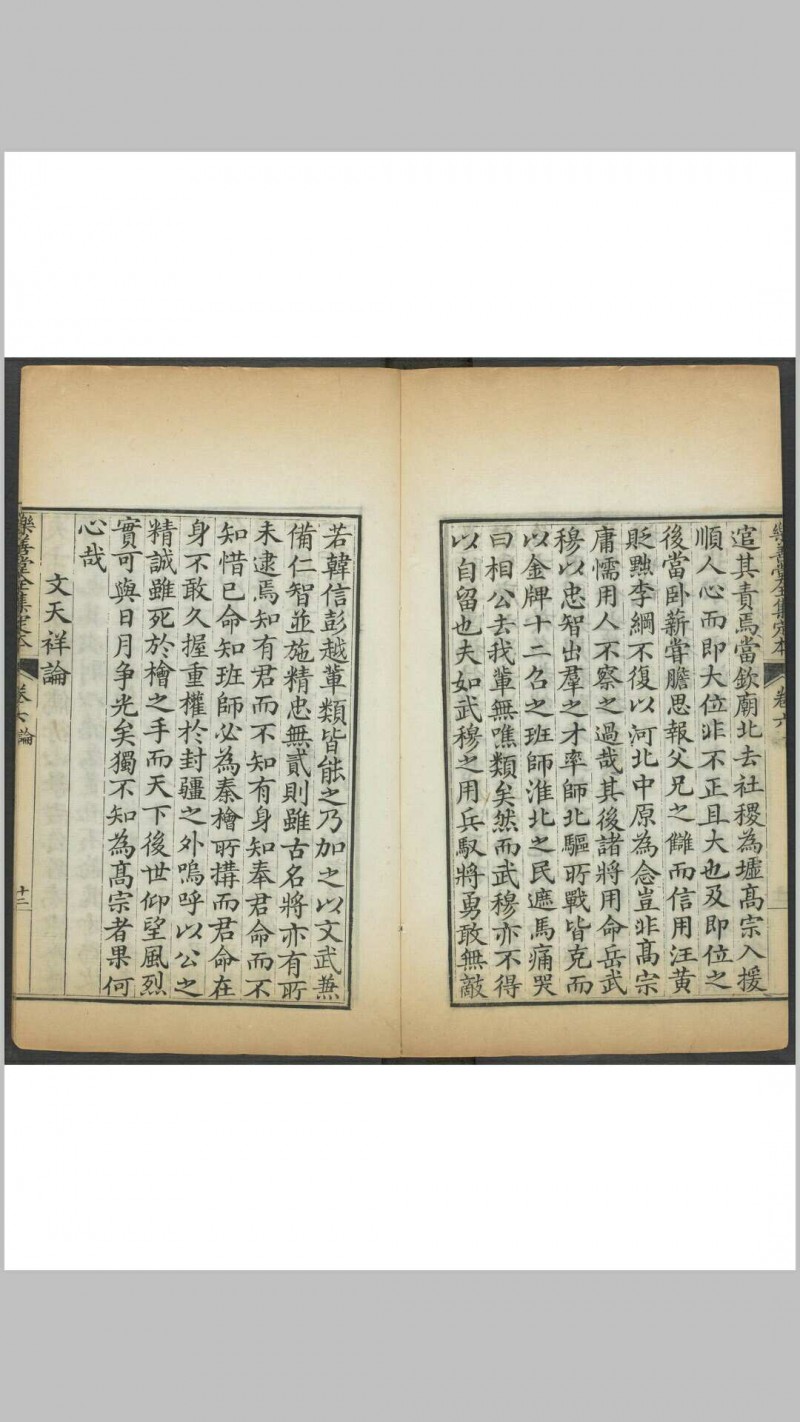 逭其責焉當欽廟北去社稷為墟髙宗入援
順人心而即大位非不正且大也及即位之
後當卧薪嘗膽思報父兄之讎而信用汪黃
貶黜李綱不復以河北中原為念豈非髙宗
庸懦用人不察之過哉其後諸將用命岳武
穆以忠智出羣之才率師北驅所戰皆克而
以金牌十二召之班師淮北之民遮馬痛哭
曰相公去我輩無噍類矣然而武穆亦不得
以自留也夫如武穆之用兵馭將勇敢無敵
樂善堂全集定本
卷六
若韓信彭越輩類皆能之乃加之以文武兼
備仁智並施精忠無貳則雖古名將亦有所
未逮焉知有君而不知有身知奉君命而不
知惜已命知班師必為秦檜所搆而君命在
身不敢久握重權於封疆之外嗚呼以公之
精誠雖死於檜之手而天下後世仰望風烈
實可與日月争光矣獨不知為髙宗者果何
心哉
文天祥論
樂善堂全集定本
卷六論
十二